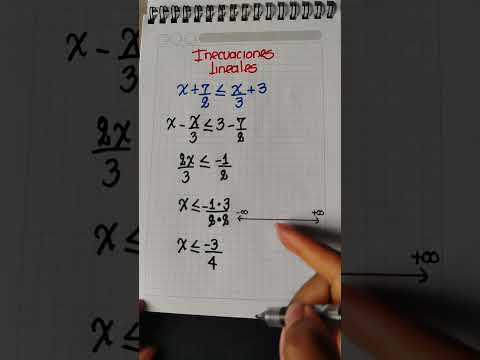 Inecuaciones
lineales
x + 7/2 ≤ x/3 + 3
x - x/3 ≤ 3 - 7/2
2x/3 ≤ -1/2
x ≤ -1•3/2•2
-∞ +∞
x ≤ -3/4